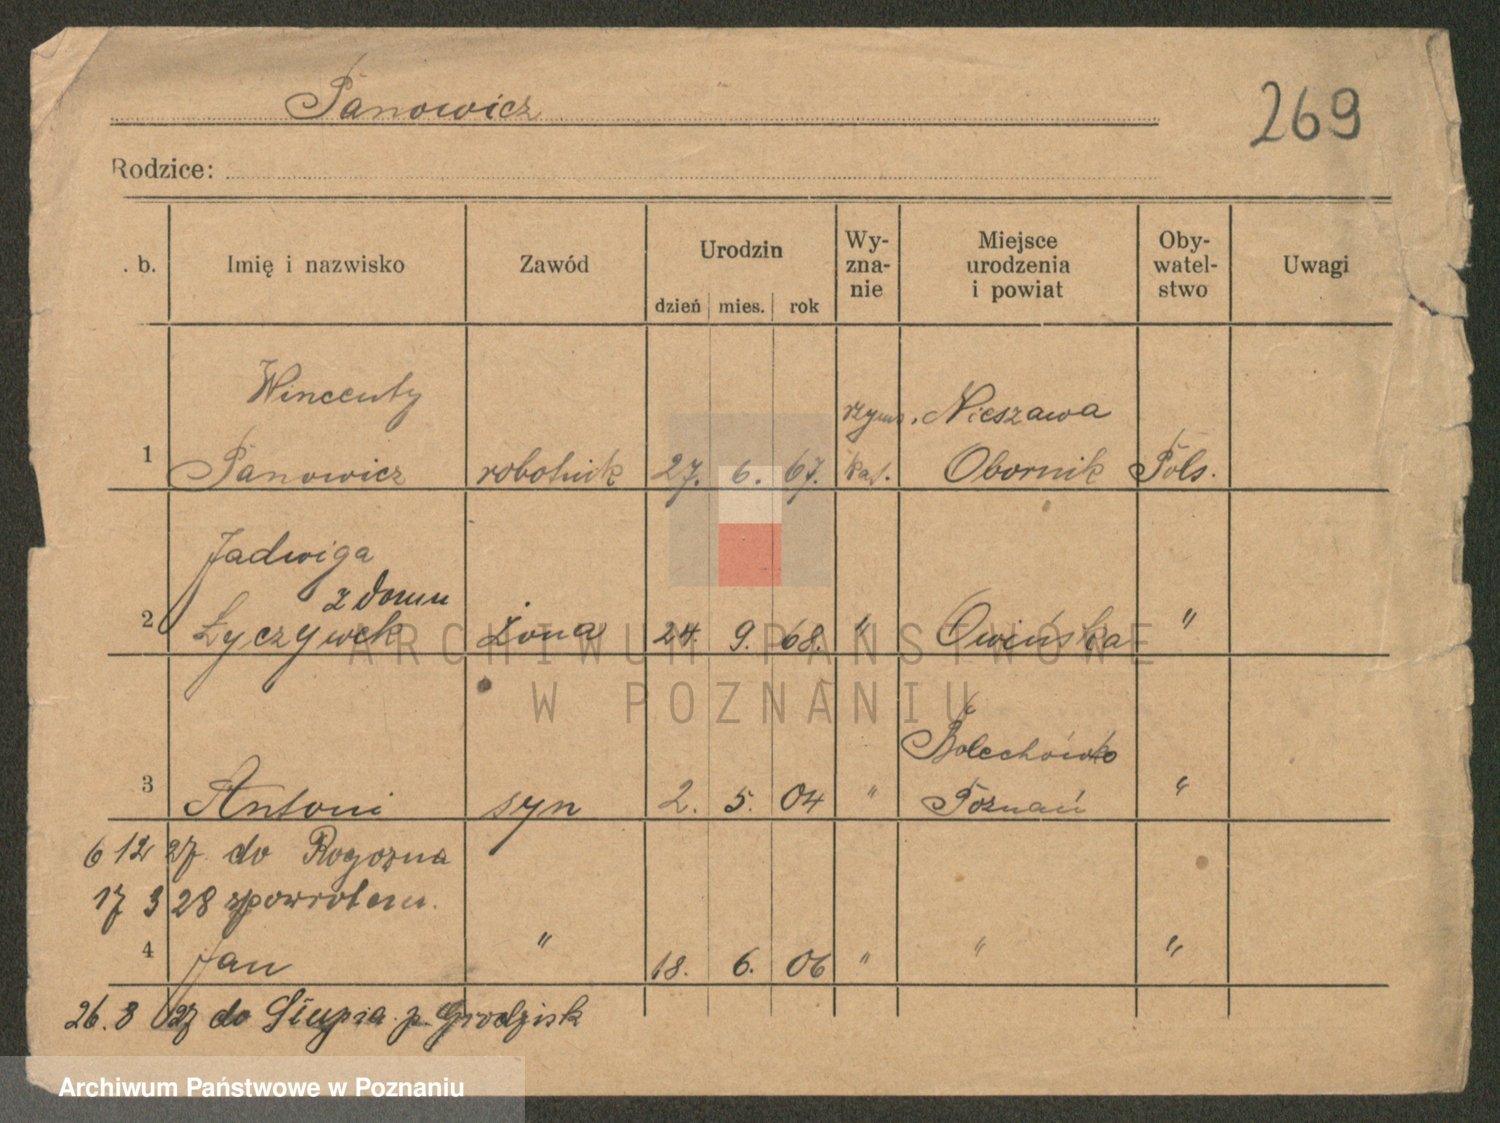 Panowicz
269
Rodzice:
. b. Imię i nazwisko Zawód Urodzin Wy-zna-nie Miejsce urodzenia i powiat Oby-watel-stwo Uwagi
dzień mies. rok
Wincenty rzyms. Nieszawa
1 Panowicz robotnik 27. 6. 67. kat. Obornik Pols.
Jadwiga
z domu
2 Łyczywek żona 24. 9. 68. " Owińska "
ARCHIWUM PAŃSTWOWE
W POZNANIU
Bolechówko
3 Antoni syn 2. 5. 04 " Poznań "
6 12 27 do Rogozna
17 3 28 zpowrotem.
4 Jan " 18. 6. 06 " " "
26. 8 27 do Słupia p. Grodzisk
Archiwum Państwowe w Poznaniu